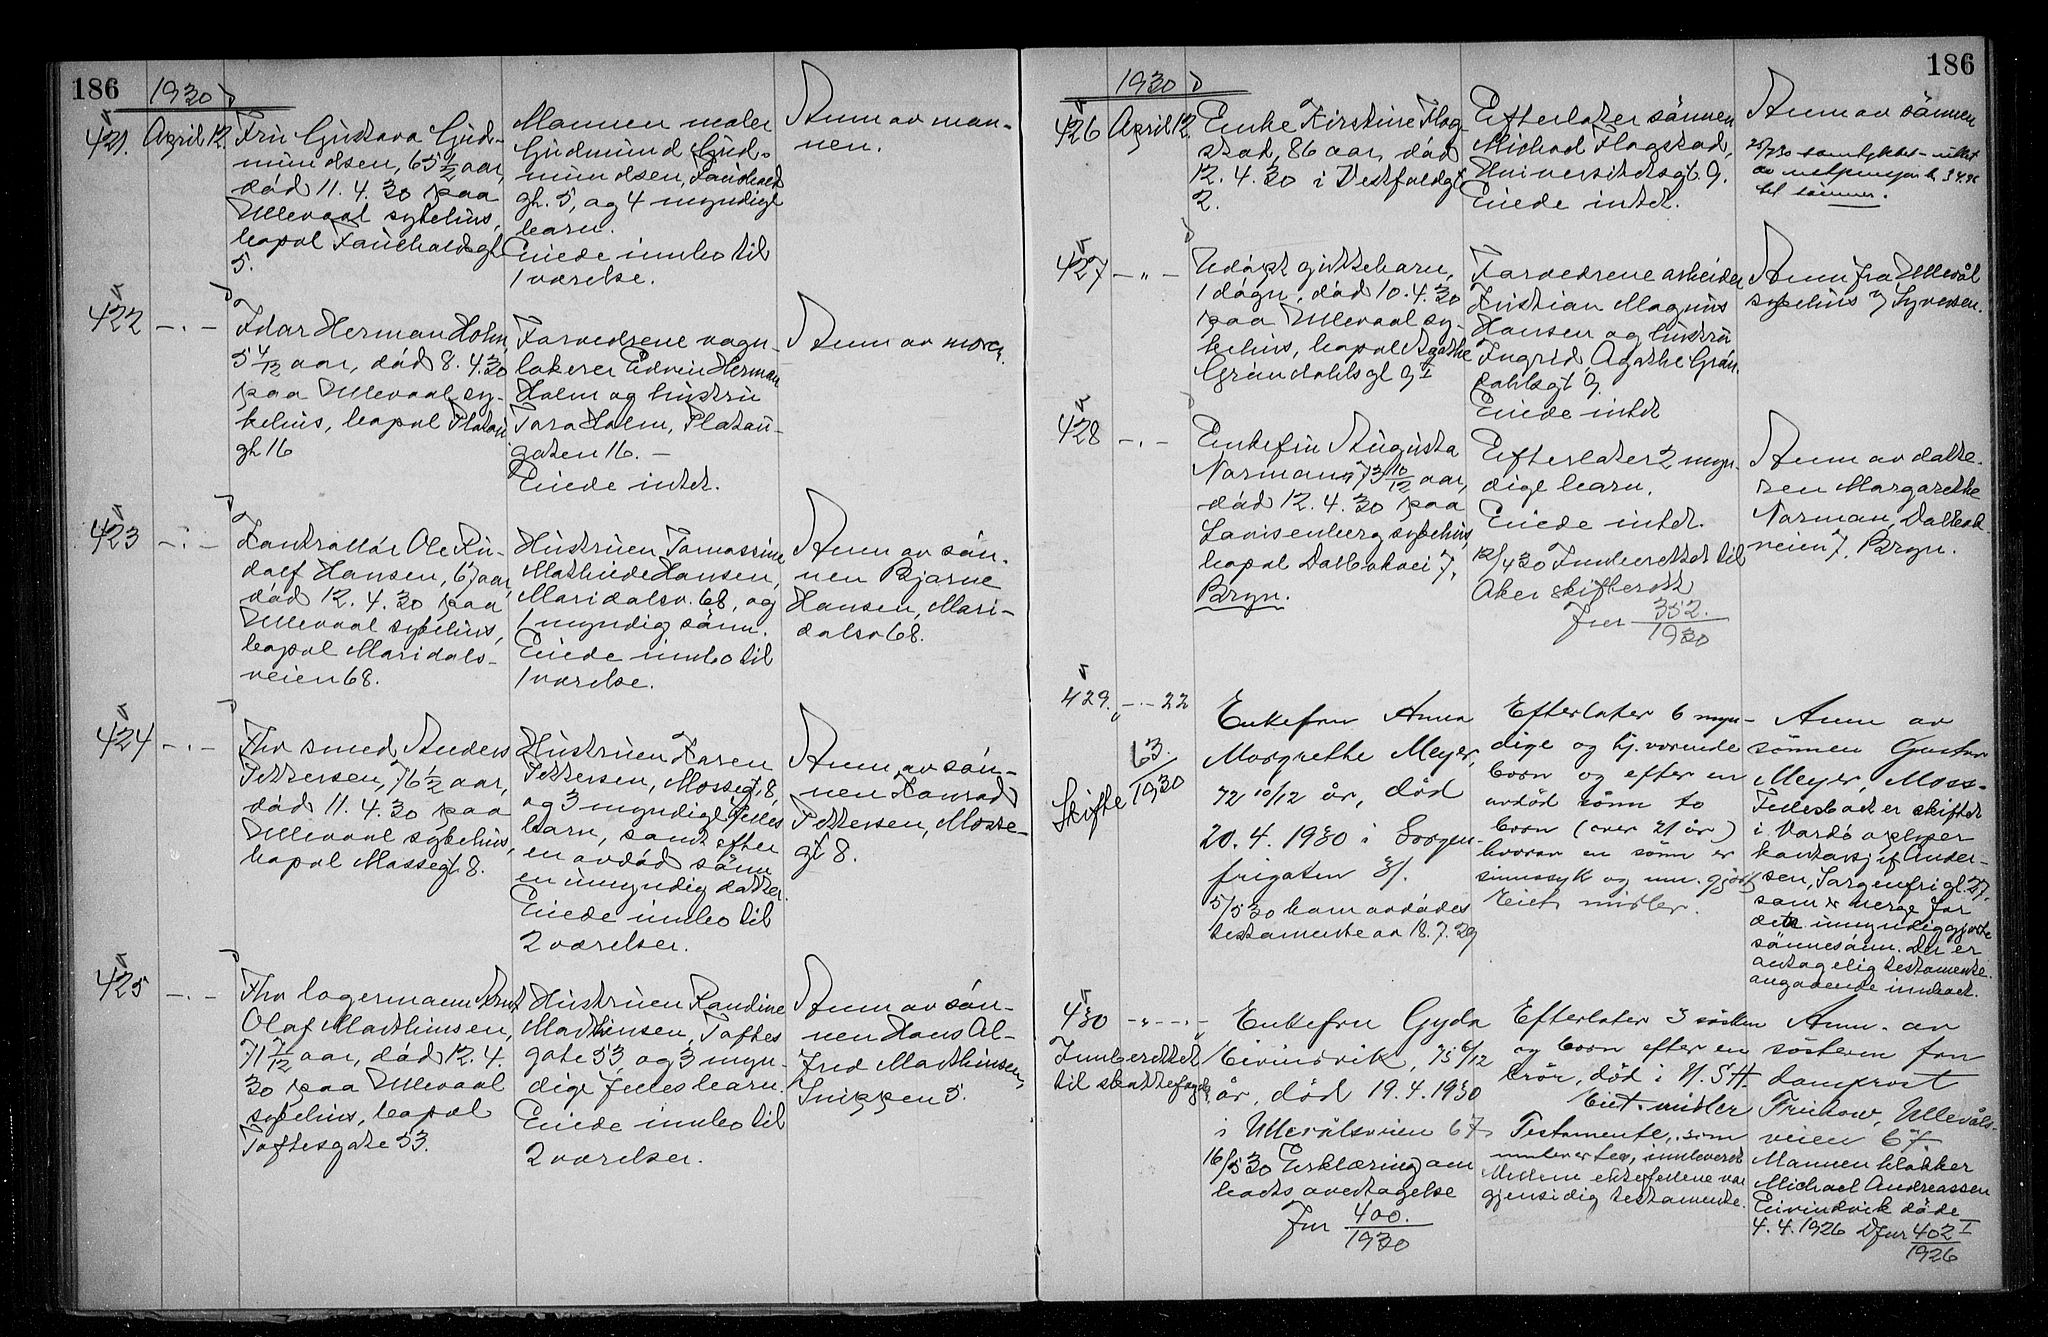 186
1930
421. April 12.
Fru Gustava Gud-
mundsen, 65 1/2 aar,
död 11.4.30 paa
Ullevaal sykehus,
bopæl Fauchaldsgt
5.
Mannen maler
Gudmund Gud-
mundsen, Fauchalds
gt. 5, og 4 myndige
barn.
Eiede innbo til
1 værelse.
Anm av man-
nen.
422 -"-
Idar Herman Holm,
5 4/12 aar, död 8.4.30
paa Ullevaal sy-
kehus, bopæl Platou
gt 16
Forældrene vogn-
lakerer Edvin Herman
Holm og hustru
Tora Holm, Platou-
gaten 16. -
Eiede intet.
Anm av moren.
423 -"-
Kontrollör Ole Ru-
dolf Hansen, 67 aar,
död 12.4.30 paa
Ullevaal sykehus,
bopæl Maridals-
veien 68.
Hustruen Tomassine
Mathilde Hansen,
Maridalsv. 68, og
1 myndig sönn.
Eiede innbo til
1 værelse.
Anm av sön-
nen Bjarne
Hansen, Mari-
dalsv 68.
424 -"-
Fhv smed Anders
Pettersen, 76 1/2 aar,
död 11.4.30 paa
Ullevaal sykehus,
bopæl Mossegt. 8.
Hustruen Karen
Pettersen, Mossegt. 8,
og 3 myndige felles
barn, samt efter
en avdöd sönn
en umyndig datter.
Eiede innbo til
2 værelser.
Anm av sön-
nen Konrad
Pettersen, Mosse-
gt 8.
425 -"-
Fhv lagermann Arnt
Olaf Mathinsen,
71 7/12 aar, död 12.4.
30 paa Ullevaal
sykehus, bopæl
Toftesgate 53.
Hustruen Randine
Mathinsen, Toftes
gate 53, og 3 myn-
dige felles barn.
Eiede innbo til
2 værelser.
Anm av sön-
nen Hans Al-
fred Mathinsen,
Snippen 5.
186
1930
426 April 12.
Enke Kirstine Flag-
stad, 86 aar, död
12.4.30 i Vestfoldgt
2.
Efterlater sönnen
Michael Flagstad,
Universitetsgt. 9.
Eiede intet.
Anm av sönnen
til sönnen.
427 -"-
Udöpt guttebarn,
1 dögn, död 10.4.30
paa Ullevaal sy-
kehus, bopæl Agathe
Gröndahlsgt 9 I
Forældrene arbeider
Kristian Magnus
Hansen og hustru
Ingrid, Agathe Grön-
dahlsgt 9.
Eiede intet
Anm fra Ullevål
sykehus v/ Syversen.
428 -"-
Enkefru Augusta
Norman 73 10/12 aar,
död 12.4.30 paa
Lovisenberg sykehus,
bopæl Dalbakvei 7,
Bryn.
Efterlater 2 myn-
dige barn.
Eiede intet.
12/4 30 Innberettet til
Aker skifterett
Jnr 352./1930
Anm av datte-
ren Margarethe
Norman, Dalbak-
veien 7, Bryn.
429. -"- 22
Skifte 63./1930
Enkefru Anna
Margrethe Meyer,
72 10/12 år, död
20.4.1930 i Sorgen-
frigaten 31.
5/5 30 kom avdödes
testamente av 18.7.29
Efterlater 6 myn-
dige og hj. værende
barn og efter en
avdöd sönn to
barn (over 21 år)
hvorav en sönn er
sinnssyk og um. gjort
Eiet midler.
Anm av
sönnen Gustav
Meyer, Moss.
Fellesboet er skiftet
i Vardö oplyser
kontorsjef Ander-
sen, Sorgenfrigt. 27,
som er verge for
den umyndiggjorte
sönnesönn. Der er
antagelig testamente.
angaaende innboet.
430 -"- -"-
Innberettet
til skattefogden
Enkefru Gyda
Eivindvik, 75 6/12
år, död 19.4.1930
i Ullevålsveien 67.
16/5 30 Erklæring om
boets overtagelse
Jnr 400./1930
Efterlater 3 sösken
og barn efter en
brör, död i U.S.A.
Eiet midler
Testamente, som
innleveres, innlevert
Mellem ektefellene var
gjensidig testamente.
Anm. av
söstern fru
domprost
Frichow, Ullevåls-
veien 67.
Mannen klokker
Michael Andreassen
Eivindvik döde
4.4.1926 Djnr 402 I/1926